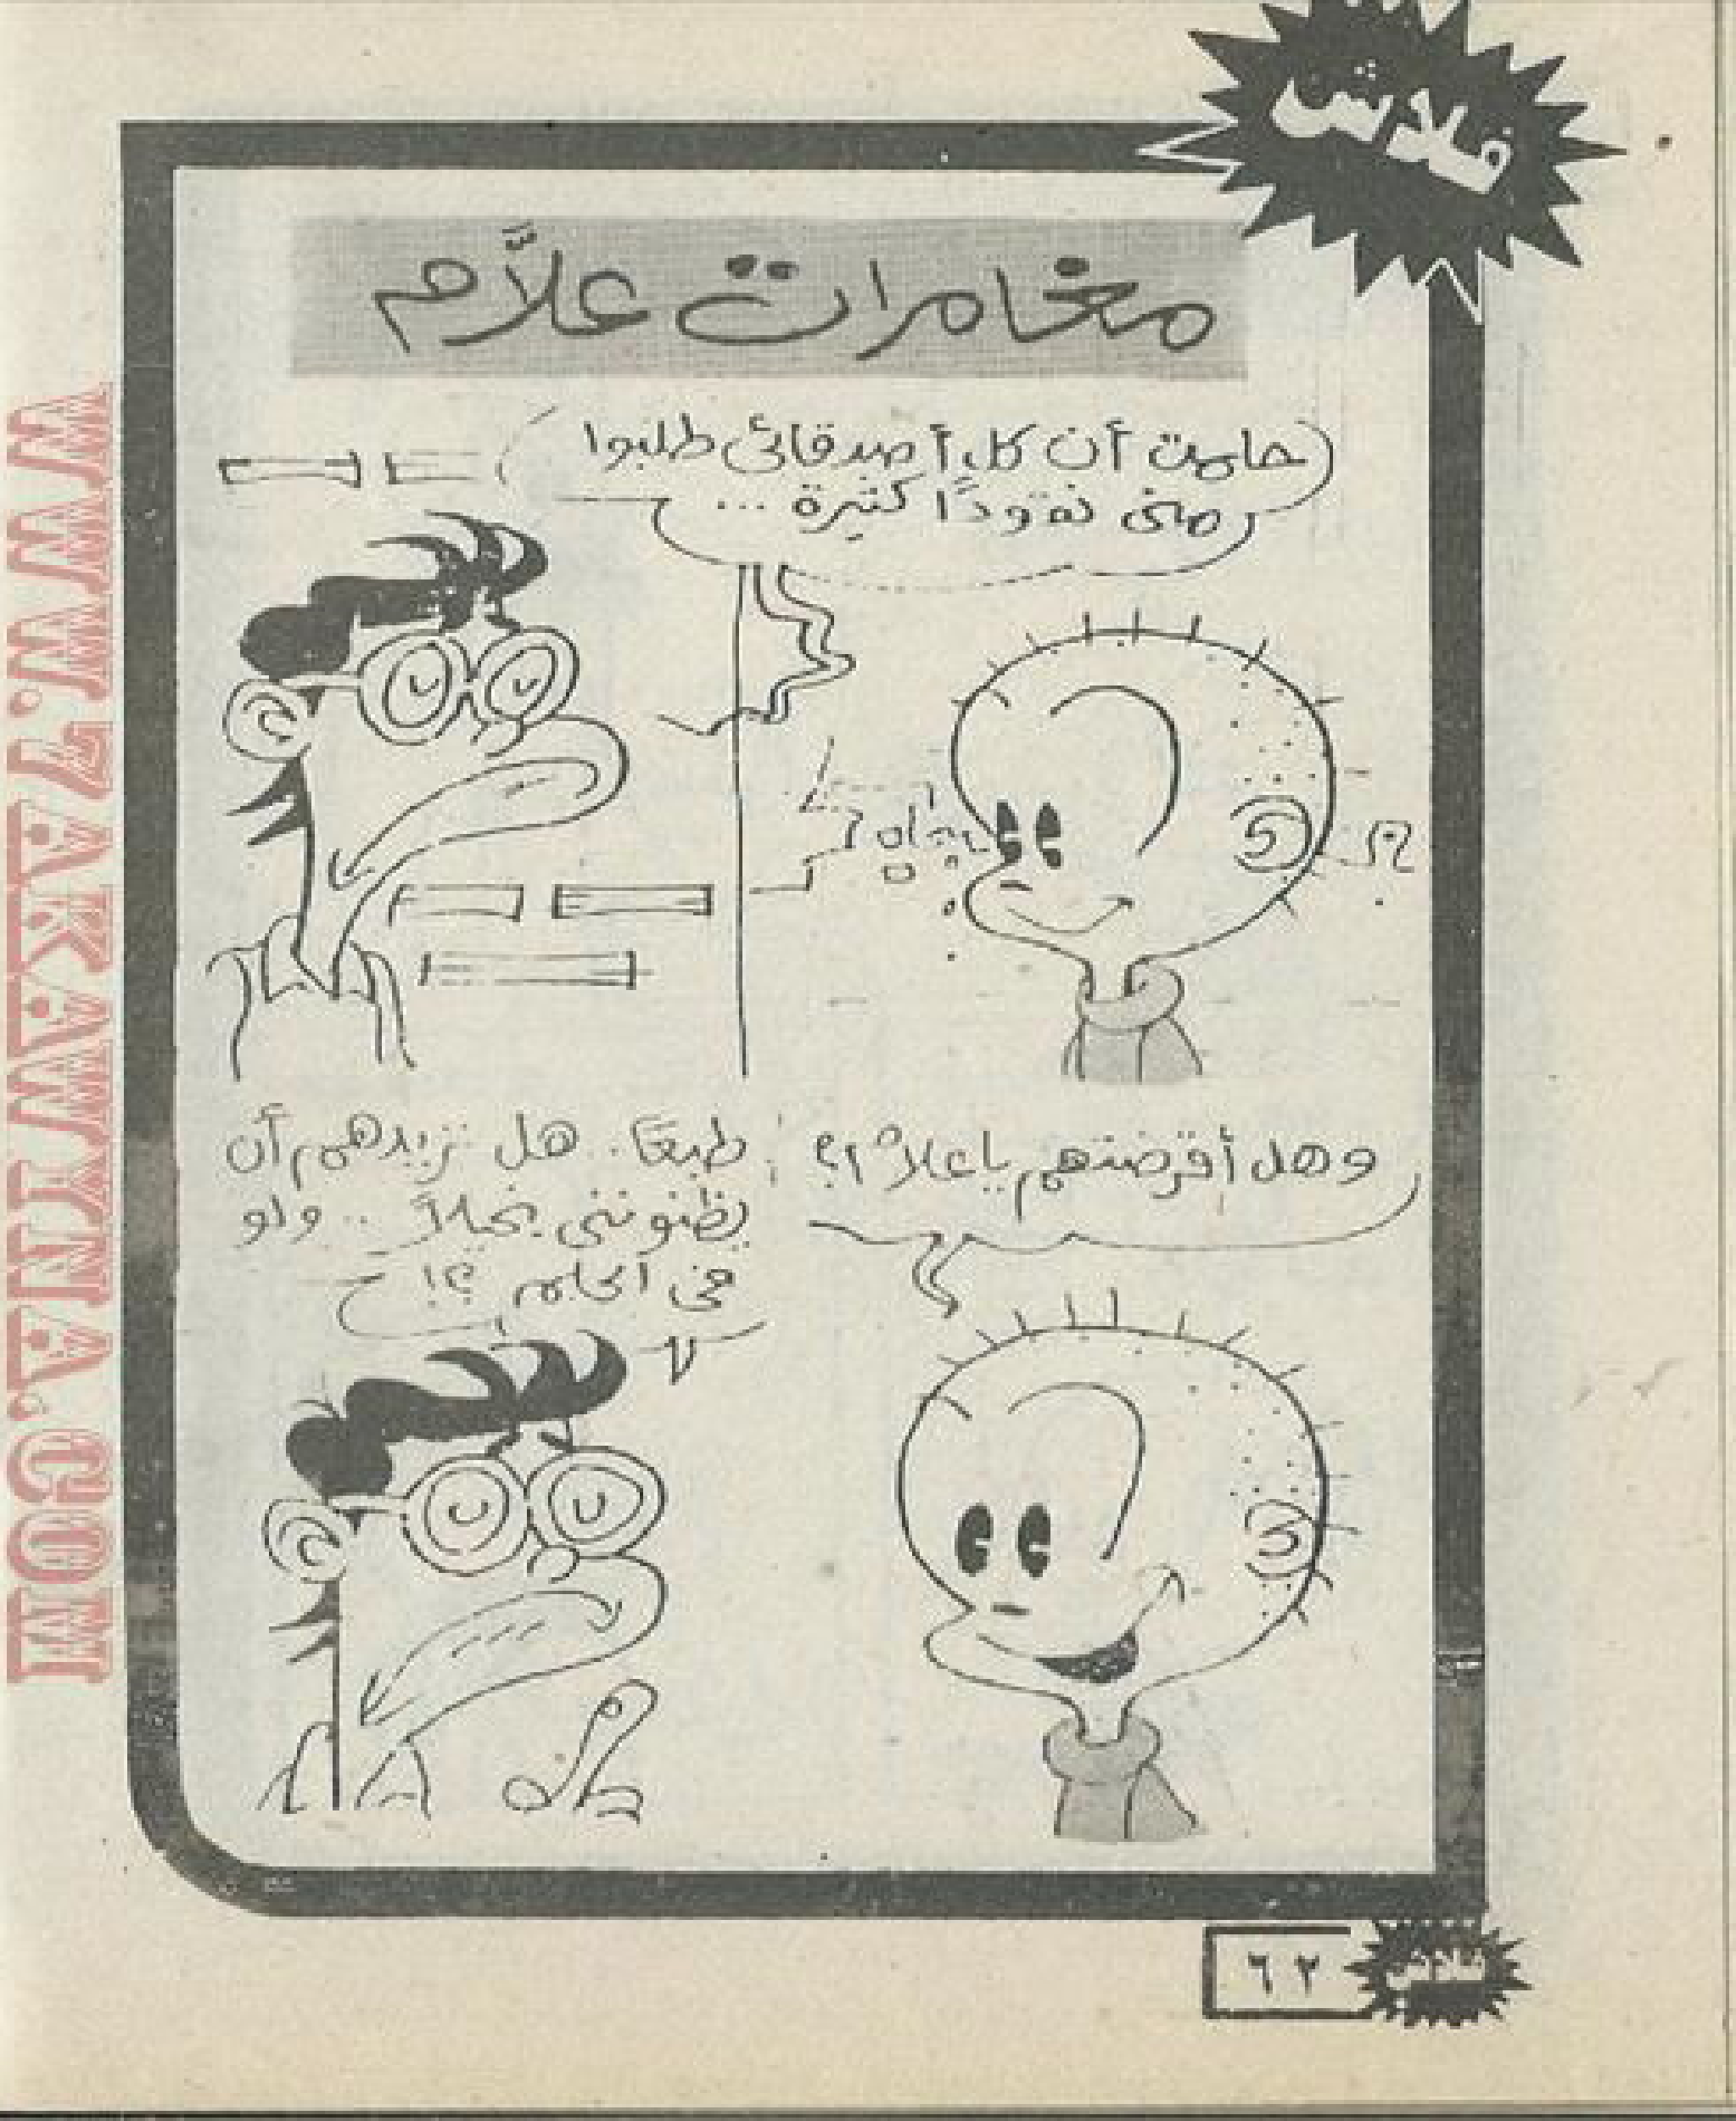 فلاش
مغامرات علاَّم
حلمت أن كل أصدقائى طلبوا
منى نقودًا كثيرة ...
وهل أقرضتهم يا علام؟
طبعًا. هل تريدهم أن
يظنوننى بخيلاً .. ولو
فى الحلم ؟!
٦٢
فلاش
WWW.7AKAWITNA.COM